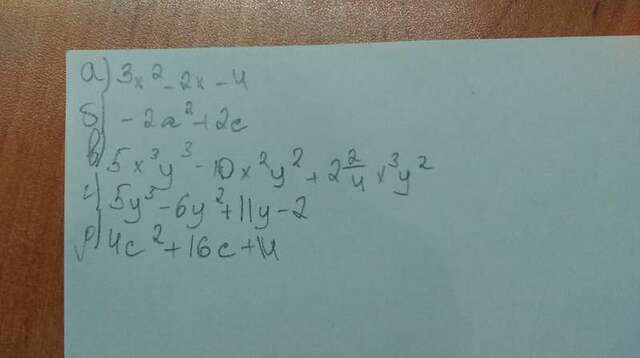 а) 3x² - 2x - 4
б) - 2a² + 2c
в) 5x³y³ - 10x²y² + 2 2/4 x³y²
г) 5y³ - 6y² + 11y - 2
д) 4c² + 16c + 14